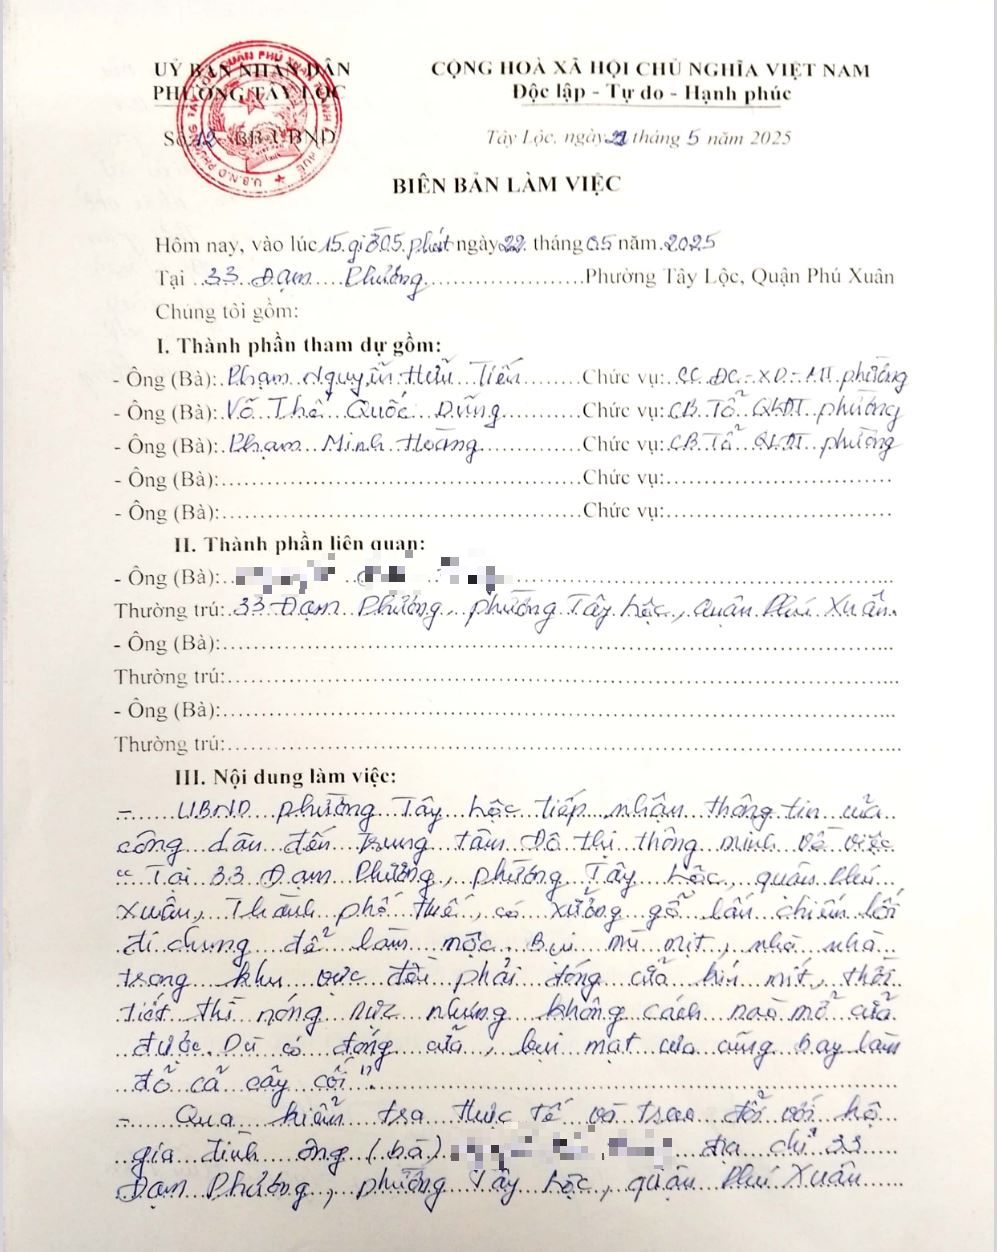 UỶ BAN NHÂN DÂN
PHƯỜNG TÂY LỘC
CỘNG HOÀ XÃ HỘI CHỦ NGHĨA VIỆT NAM
Độc lập - Tự do - Hạnh phúc
Số 12 BB-UBND
Tây Lộc, ngày 22 tháng 5 năm 2025
BIÊN BẢN LÀM VIỆC
Hôm nay, vào lúc 15 giờ 05 phút ngày 22 tháng 05 năm 2025
Tại 33 Đạm Phương Phường Tây Lộc, Quận Phú Xuân
Chúng tôi gồm:
I. Thành phần tham dự gồm:
- Ông (Bà): Phạm Nguyễn Hữu Tiến Chức vụ: CC ĐC-XD-MT phường
- Ông (Bà): Võ Thế Quốc Dũng Chức vụ: CB Tổ QLĐT phường
- Ông (Bà): Phạm Minh Hoàng Chức vụ: CB Tổ QLĐT phường
- Ông (Bà): Chức vụ:
- Ông (Bà): Chức vụ:
II. Thành phần liên quan:
- Ông (Bà):
Thường trú: 33 Đạm Phương, phường Tây Lộc, quận Phú Xuân.
- Ông (Bà):
Thường trú:
- Ông (Bà):
Thường trú:
III. Nội dung làm việc:
- UBND phường Tây Lộc tiếp nhận thông tin của
công dân đến trung tâm Đô thị thông minh về việc
"Tại 33 Đạm Phương, phường Tây Lộc, quận Phú
Xuân, Thành phố Huế, có xưởng gỗ lấn chiếm lối
đi chung để làm mộc. Bụi mù mịt, nhà nhà
trong khu vực đều phải đóng cửa kín mít, thời
tiết thì nóng nực nhưng không cách nào mở cửa
được. Dù có đóng cửa, bụi mạt cưa cũng bay làm
đỗ cả cây cối".
- Qua kiểm tra thực tế và trao đổi với hộ
gia đình ông (bà) địa chỉ 33
Đạm Phương, phường Tây Lộc, quận Phú Xuân